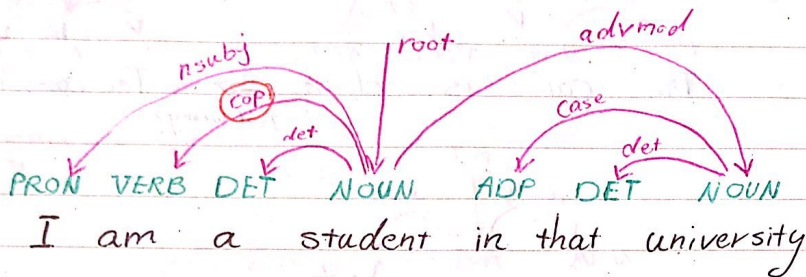 nsubj root advmod
cop case
det det
PRON VERB DET NOUN ADP DET NOUN
I am a student in that university